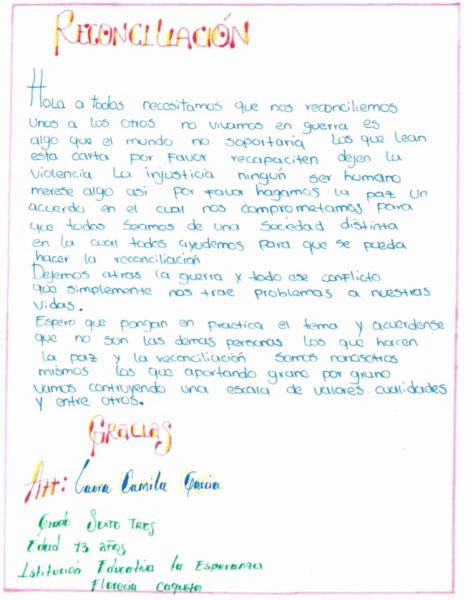 RECONCILIACIÓN
Hola a todos necesitamos que nos reconciliemos
unos a los otros no vivamos en guerra es
algo que el mundo no soportaria Los que lean
esta carta por Favor recapaciten dejen La
violencia La injusticia ningún ser humano
merese algo asi por Favor hagamos la paz un
acuerdo en el cual nos comprometamos para
que todos Seamos de una Sociedad distinta
en la cual todos ayudemos para que se pueda
hacer la reconciliación
Dejemos atras la guerra y todo ese conflicto
que simplemente nos trae problemas a nuestras
vidas.
Espero que pongan en practica el tema y acuerdense
que no son las demas personas los que hacen
la paz y la reconciliación Somos nonosotros
mismos los que aportando grano por grano
vamos contruyendo una escala de valores cualidades
y entre otros.
GRACIAS
Att: Laura Camila Garcia
Grado Sexto Tres
Edad 13 años
Istitución Educativa la Esperanza
Florecia Caqueta